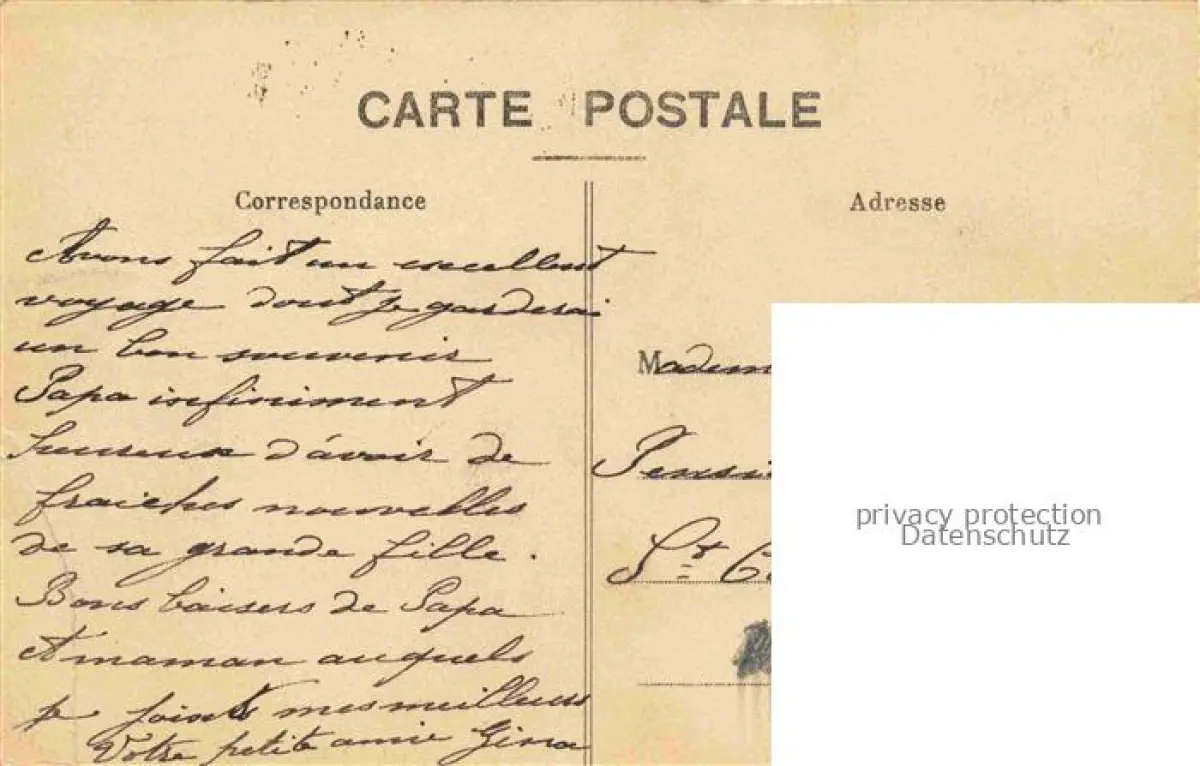 CARTE POSTALE
Correspondance
Adresse
Avons fait un excellent
voyage dont je garderai
un bon souvenir
Papa infiniment
heureux d'avoir de
fraiches nouvelles
de sa grande fille.
Bons baisers de Papa
et maman auquels
je joints mes meilleurs
Votre petite amie Gina
Madem
Pensi
St C
privacy protection
Datenschutz